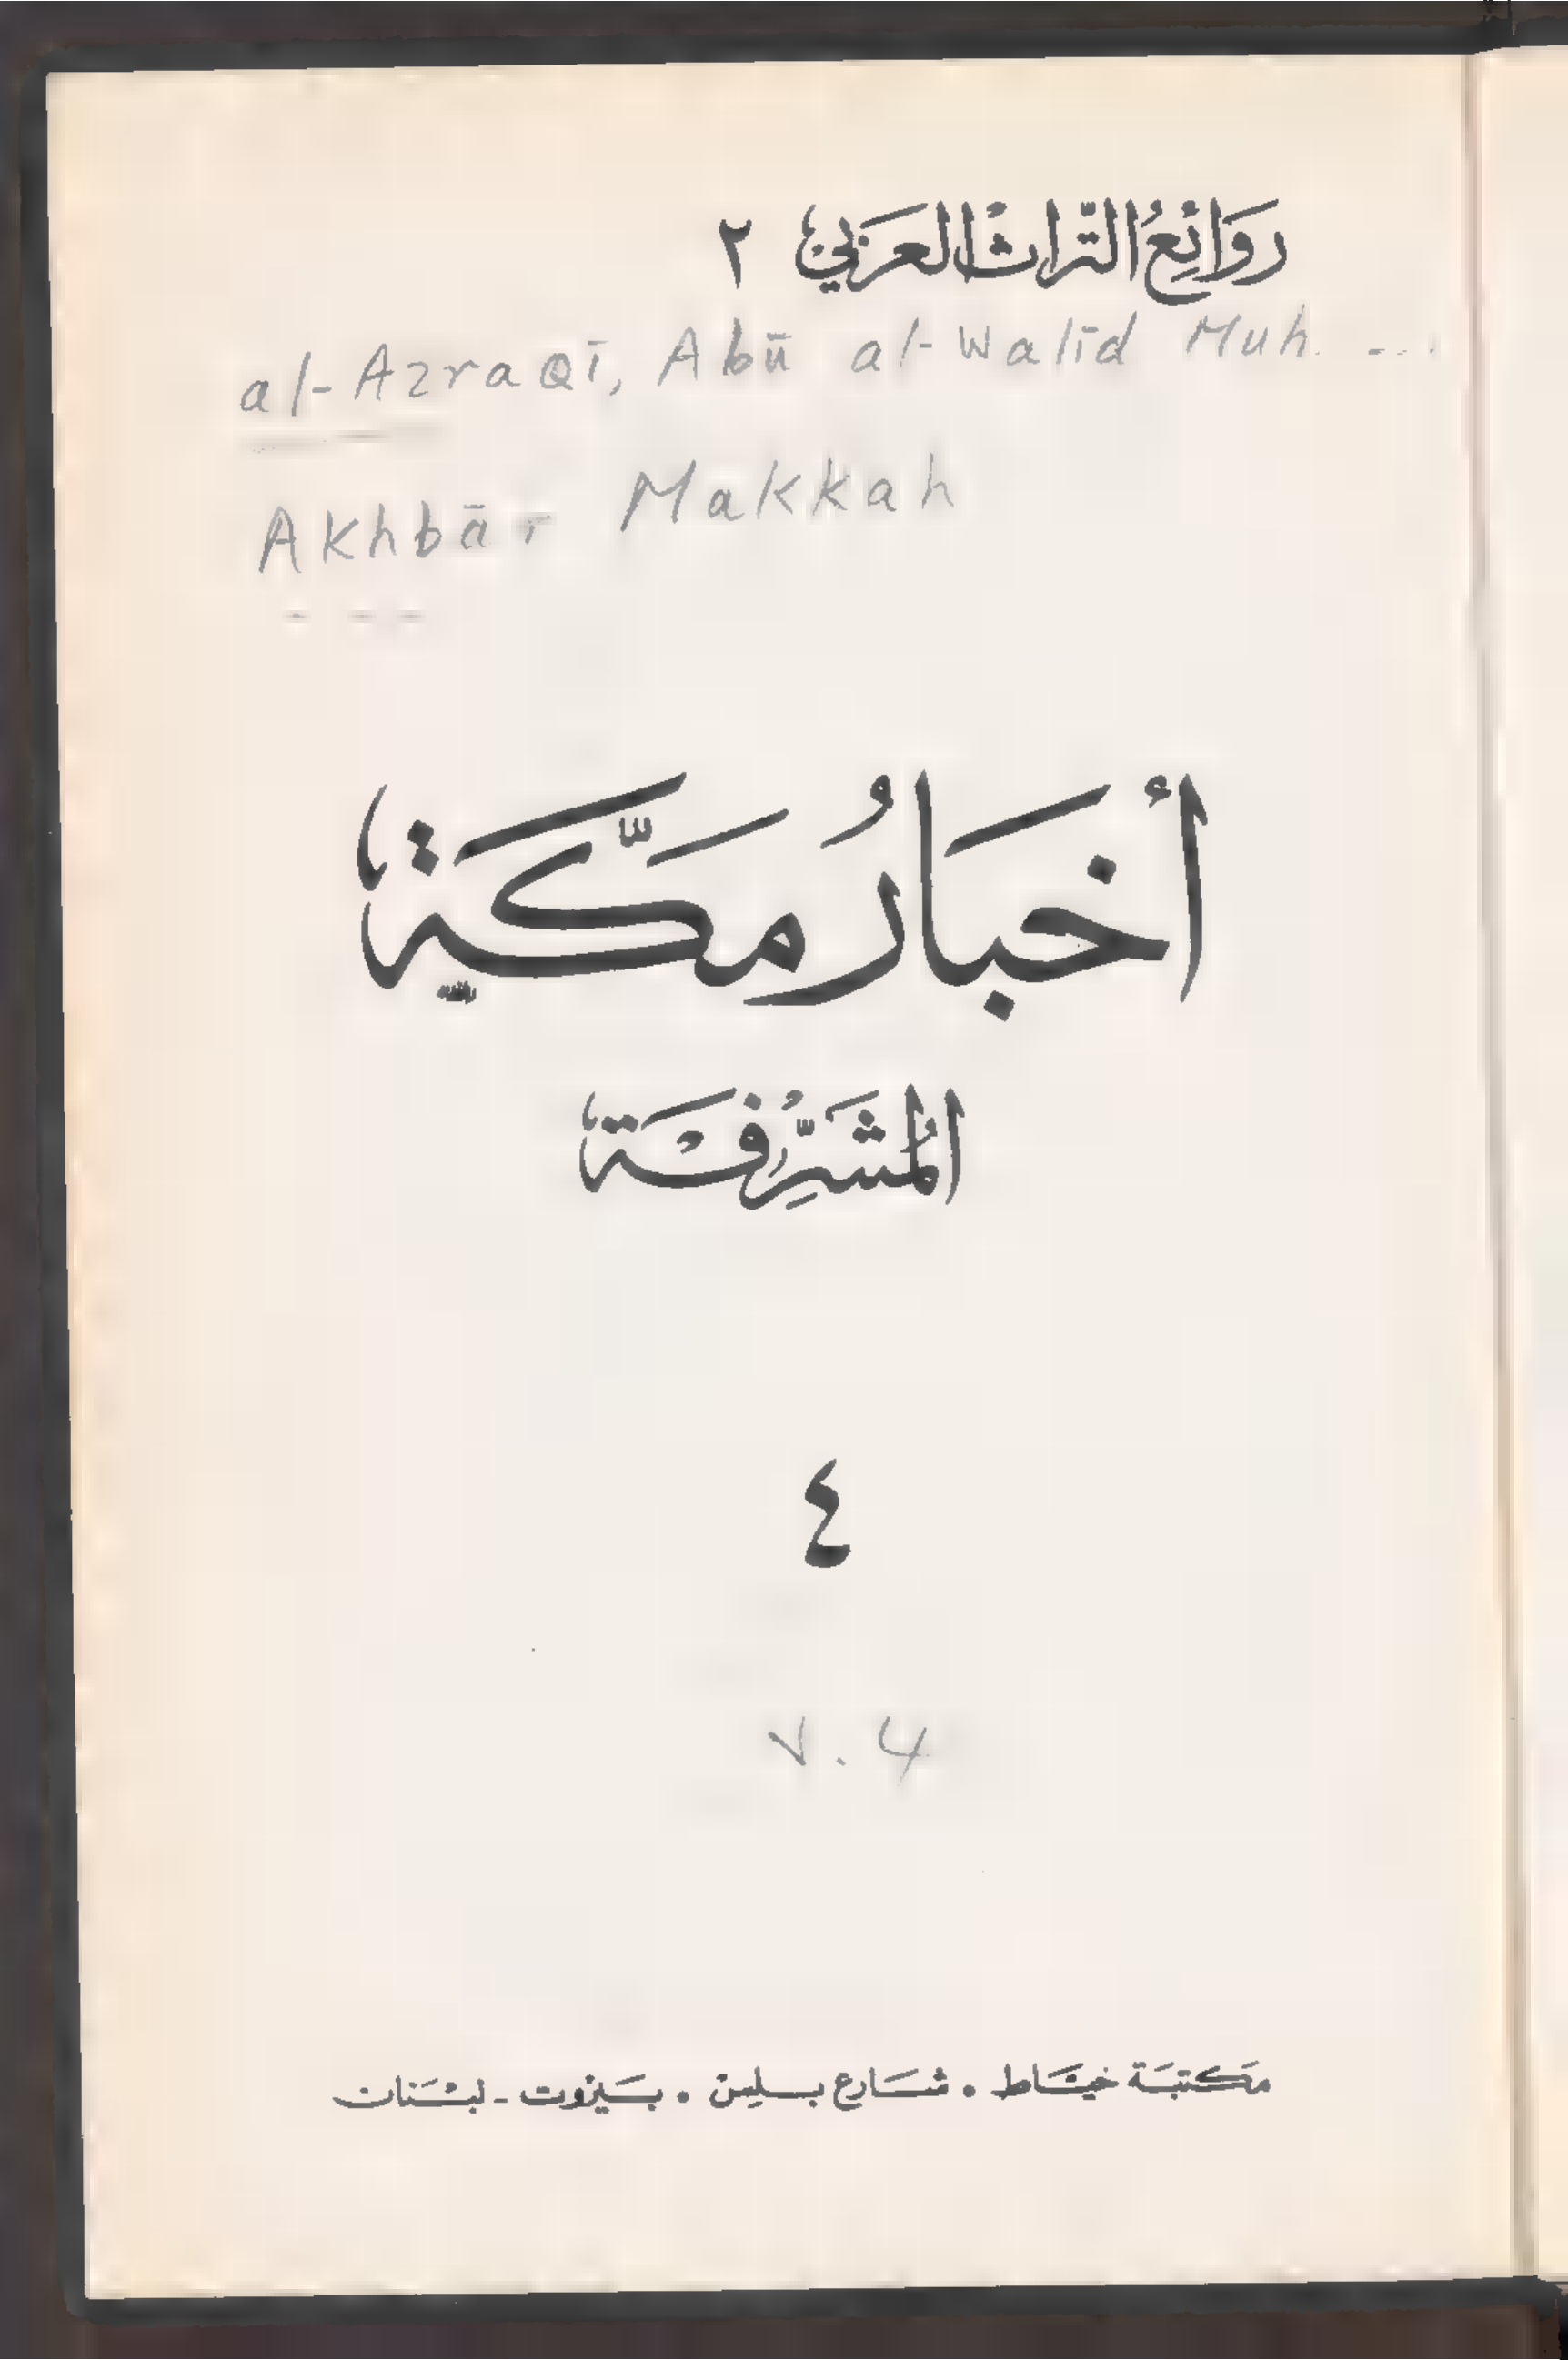 روائع التراث العربي ٢
al-Azraqī, Abū al-Walīd Muh. ...
Akhbār Makkah
أخبار مكة
المشرفة
٤
v. 4
مكتبة خياط • شارع بلس • بيروت - لبنان